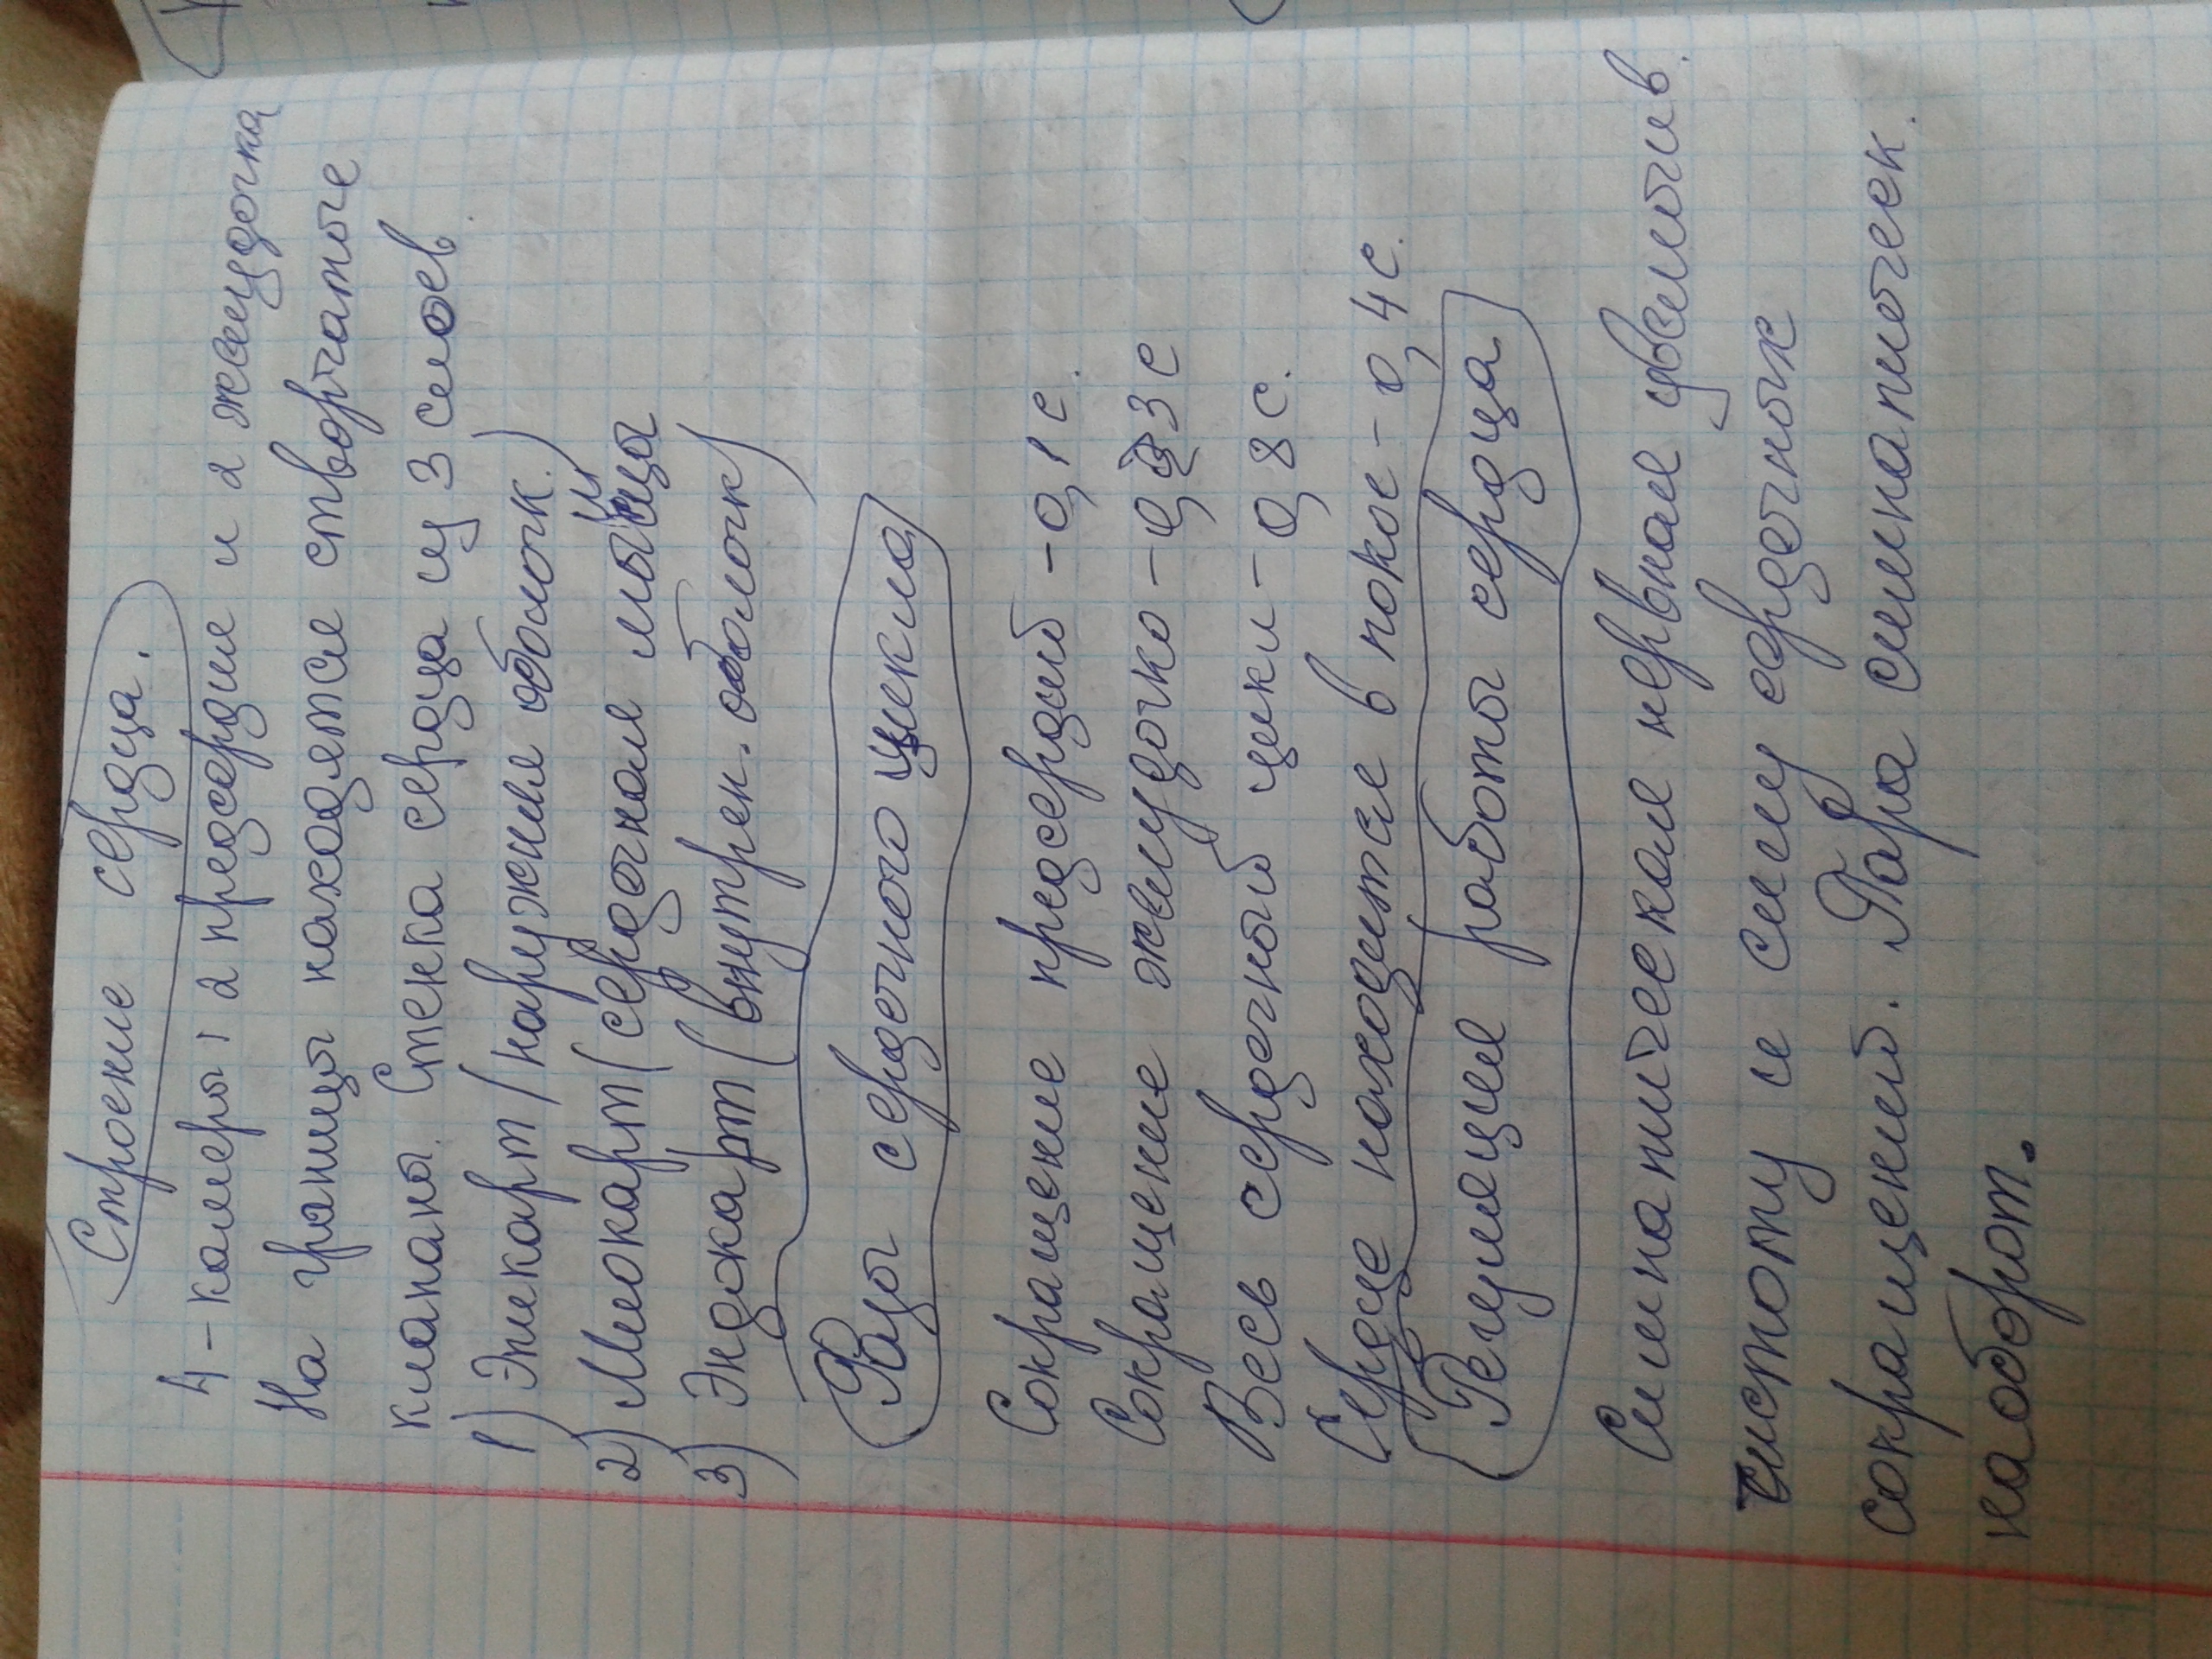 Строение сердца.
4-камеры, 2 предсердие и 2 желудочка
На границы находятся створчатые
клапаны. Стенка сердца из 3 слоев
1) Эпикарт (наружние оболочк.)
2) Миокарт (сердечная мышцы
3) Эндокарт (внутрен. оболочк)
Фазы сердечного цикла
Сокращение предсердий - 0,1 с.
Сокращение желудочко - 0,3 с
Весь сердечный цикл - 0,8 с.
Сердце находится в покое - 0,4 с.
Регуляция работы сердца
Симпатическая нервная увеличив.
чистоту и силу сердечных
сокращений. Пара симпатичек.
наоборот.